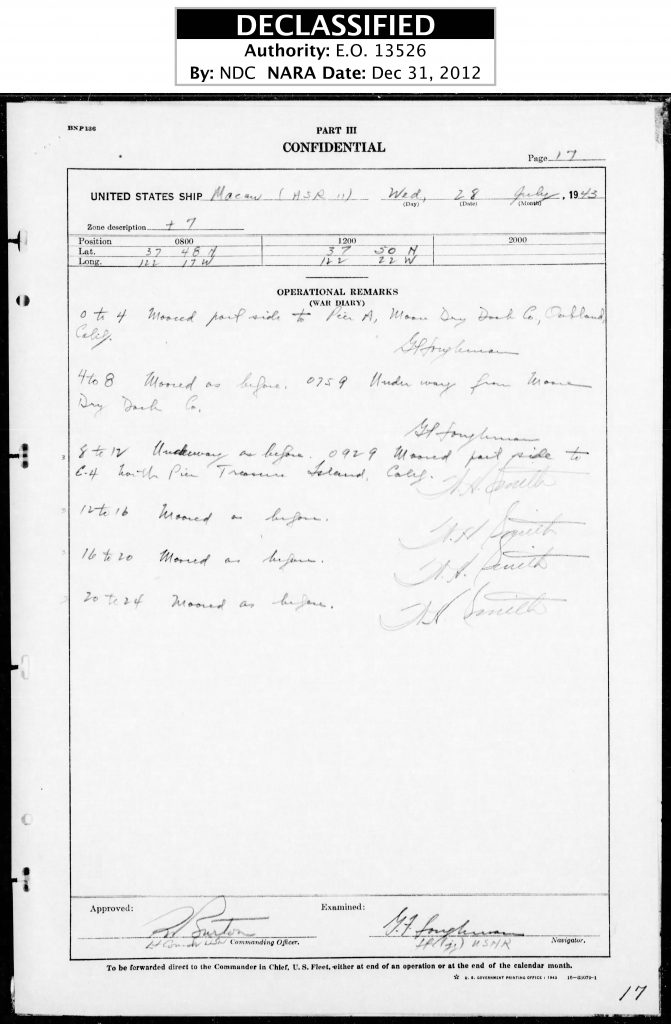 DECLASSIFIED
Authority: E.O. 13526
By: NDC NARA Date: Dec 31, 2012
BNP136
PART III
CONFIDENTIAL
Page 17
UNITED STATES SHIP Macaw (ASR 11) Wed, 28 July, 1943
(Day) (Date) (Month)
Zone description + 7
Position 0800 1200 2000
Lat. 37 48 N 37 50 N
Long. 122 17 W 122 22 W
OPERATIONAL REMARKS
(WAR DIARY)
0 to 4 Moored port side to Pier A, Moore Dry Dock Co, Oakland,
Calif.
4 to 8 Moored as before. 0759 Underway from Moore
Dry Dock Co.
8 to 12 Underway as before. 0929 Moored port side to
E-4 North Pier Treasure Island, Calif.
W.H. Smith
12 to 16 Moored as before.
W.H. Smith
16 to 20 Moored as before.
W.H. Smith
20 to 24 Moored as before.
W.H. Smith
Approved: Examined:
Burton
Lt Comdr USN Commanding Officer. Lt(jg) USNR Navigator.
To be forwarded direct to the Commander in Chief, U.S. Fleet, either at end of an operation or at the end of the calendar month.
☆ U. S. GOVERNMENT PRINTING OFFICE : 1943
17